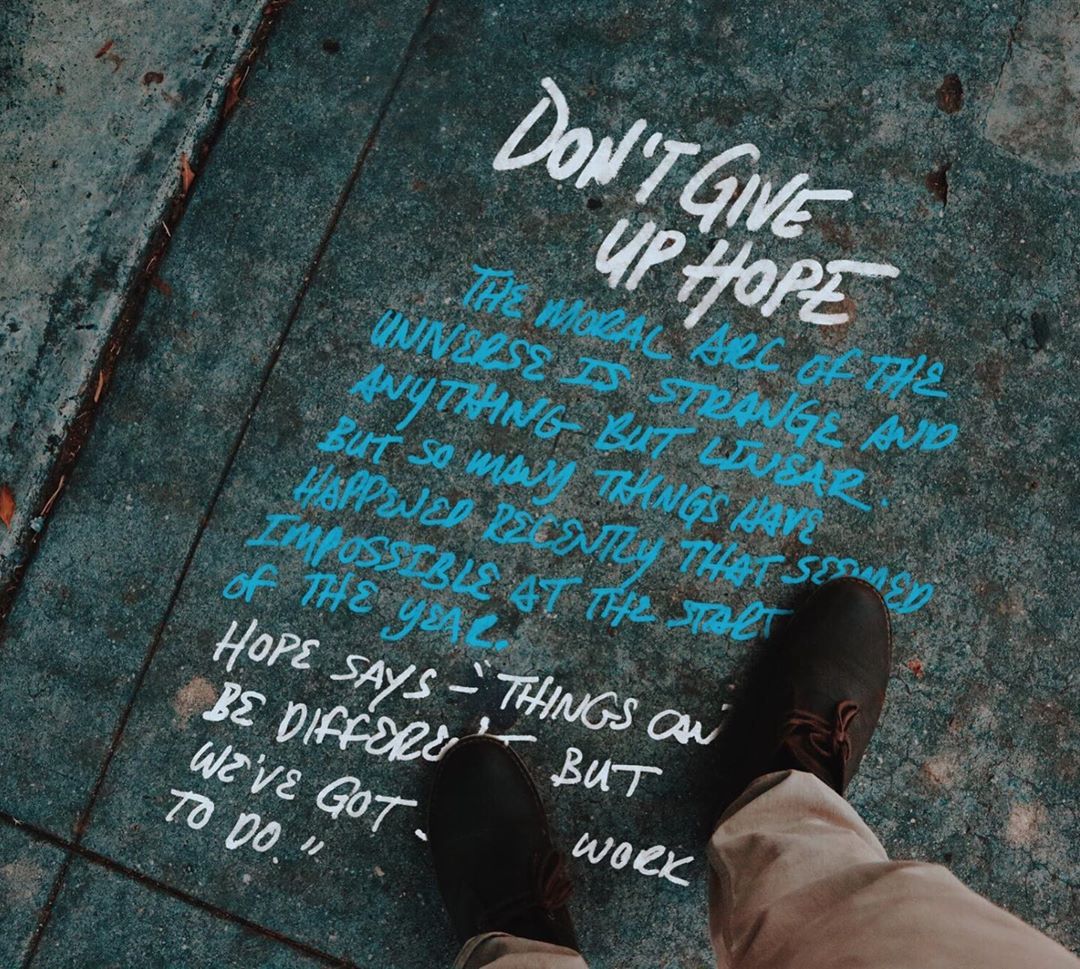 DON'T GIVE
UP HOPE
THE MORAL ARC OF THE
UNIVERSE IS STRANGE AND
ANYTHING BUT LINEAR.
BUT SO MANY THINGS HAVE
HAPPENED RECENTLY THAT SEEMED
IMPOSSIBLE AT THE START
OF THE YEAR.
HOPE SAYS - "THINGS CAN
BE DIFFERENT BUT
WE'VE GOT WORK
TO DO."